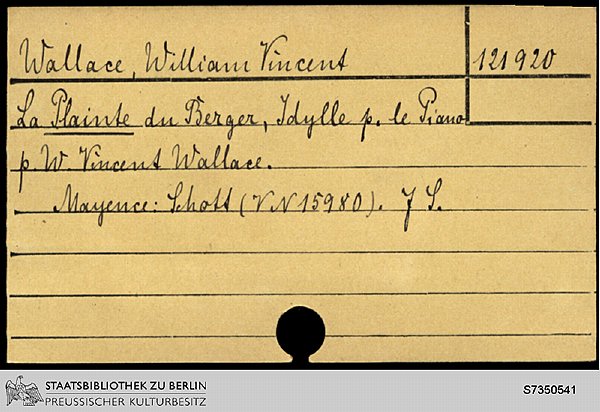 Wallace, William Vincent
121920
La Plainte du Berger, Idylle p. le Piano
p. W. Vincent Wallace.
Mayence: Schott (VN 15980). 7 S.
STAATSBIBLIOTHEK ZU BERLIN
PREUSSISCHER KULTURBESITZ
S7350541